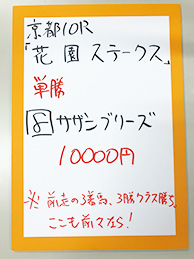 京都10R
「花園ステークス」
単勝
⑧ サザンブリーズ
10000円
※前走の3着馬、3勝クラス勝ち
ここも前々なら！